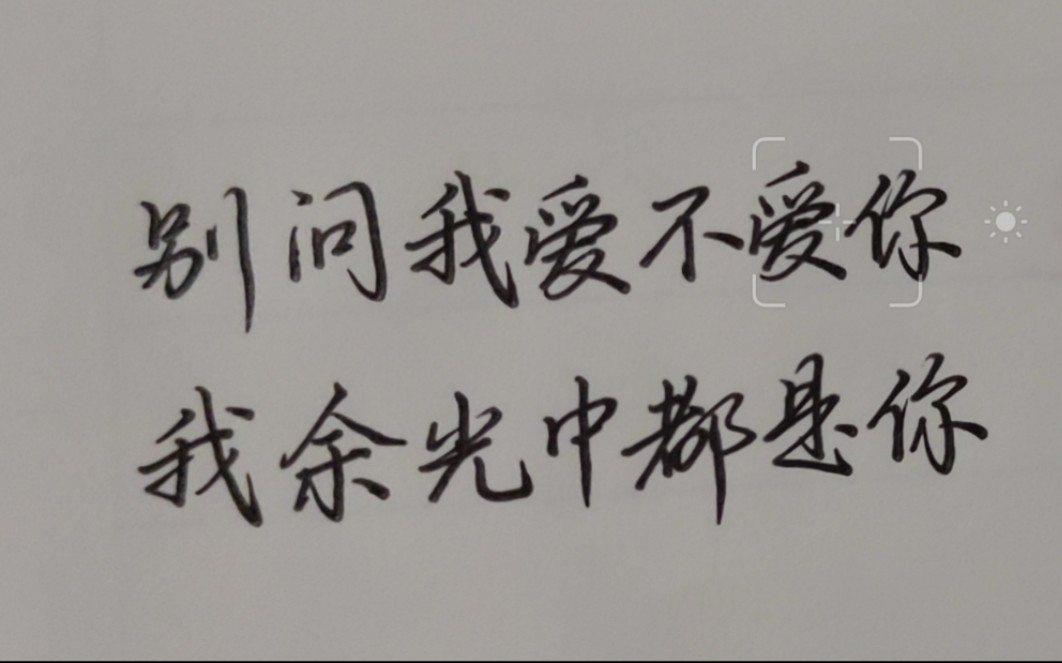 别问我爱不爱你
我余光中都是你